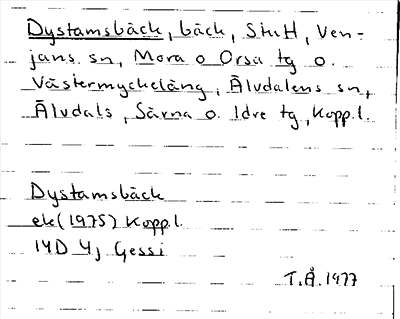 Dystamsbäck, bäck, StuH, Ven-
jans sn, Mora o Orsa tg o.
Västermyckeläng, Älvdalens sn,
Älvdals, Särna o. Idre tg, Kopp.l.
Dystamsbäck
ek (1975) Kopp.l.
14D 4j Gessi
T.Å. 1977